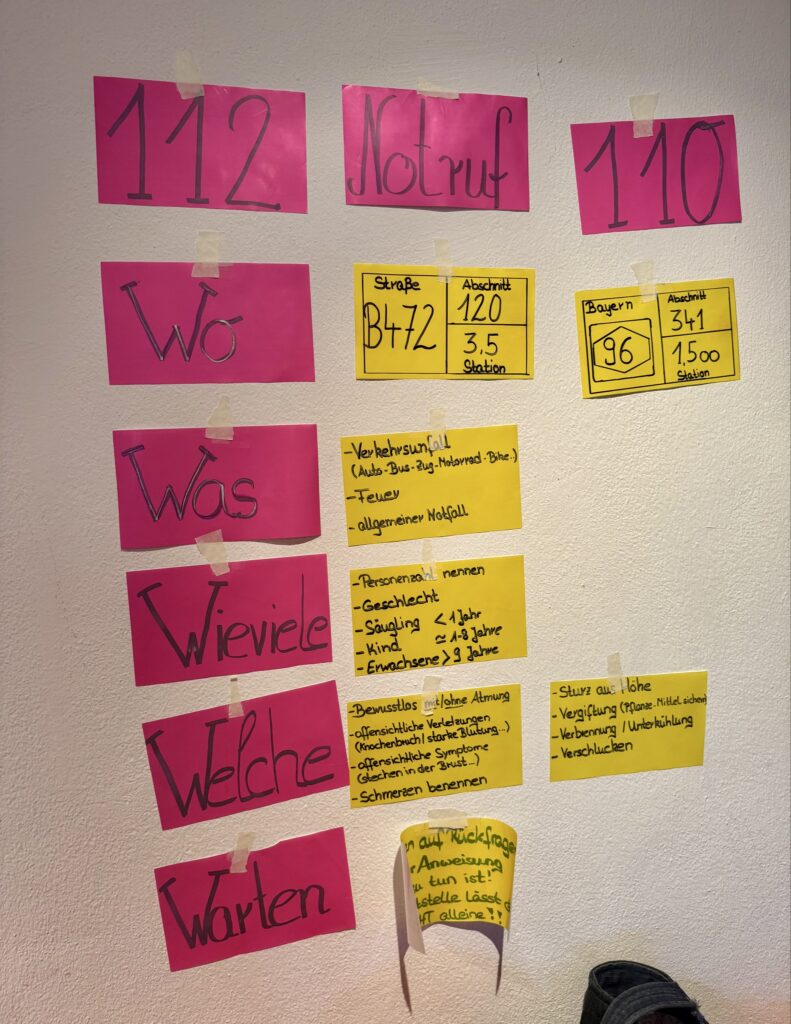 112
Notruf
110
Wo
Straße
B472
Abschnitt
120
3,5
Station
Bayern
96
Abschnitt
341
1,500
Station
Was
-Verkehrsunfall
(Auto-Bus-Zug-Motorrad-Bike..)
-Feuer
-allgemeiner Notfall
Wieviele
-Personenzahl nennen
-Geschlecht
-Säugling < 1 Jahr
-Kind ≃ 1-8 Jahre
-Erwachsene > 9 Jahre
Welche
-Bewusstlos mit/ohne Atmung
-offensichtliche Verletzungen
(Knochenbruch/starke Blutung...)
-offensichtliche Symptome
(stechen in der Brust...)
-Schmerzen benennen
-Sturz aus Höhe
-Vergiftung (Pflanze-Mittel sichern)
-Verbrennung/Unterkühlung
-Verschlucken
Warten
auf Rückfragen
Anweisung
tun ist!
lässt
alleine!!